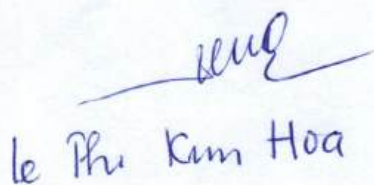 le Phi Kim Hoa